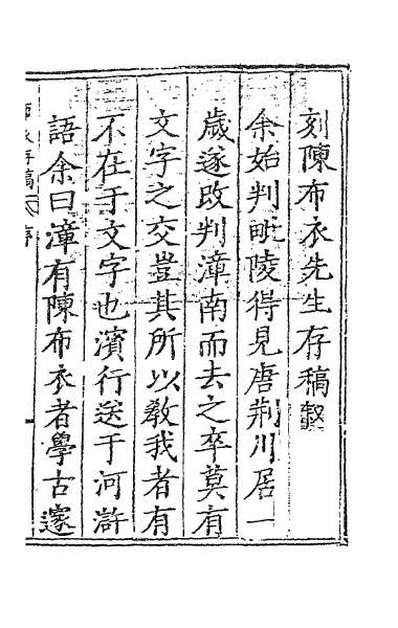 刻陳布衣先生存稿敍
余始判毗陵得見唐荆川居一
歲遂改判漳南而去之卒莫有
文字之交豈其所以敎我者有
不在于文字也濱行送于河滸
語余曰漳有陳布衣者學古邃
布衣存稿 序